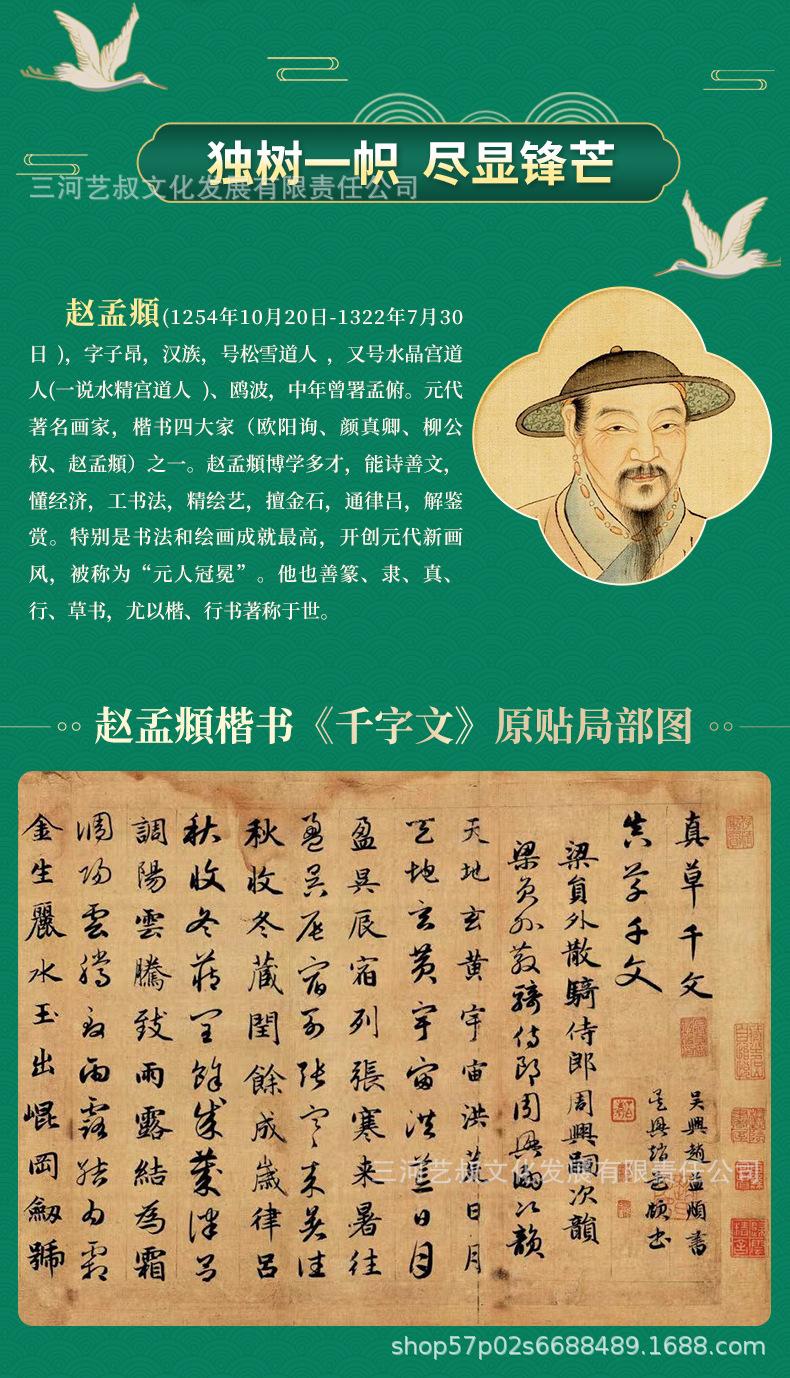 独树一帜 尽显锋芒
三河艺叔文化发展有限责任公司
赵孟頫(1254年10月20日-1322年7月30
日 )，字子昂，汉族，号松雪道人 ，又号水晶宫道
人(一说水精宫道人 )、鸥波，中年曾署孟俯。元代
著名画家，楷书四大家（欧阳询、颜真卿、柳公
权、赵孟頫）之一。赵孟頫博学多才，能诗善文，
懂经济，工书法，精绘艺，擅金石，通律吕，解鉴
赏。特别是书法和绘画成就最高，开创元代新画
风，被称为“元人冠冕”。他也善篆、隶、真、
行、草书，尤以楷、行书著称于世。
赵孟頫楷书《千字文》原贴局部图
真草千文
吴興趙孟頫書
真草千文
吴興趙孟頫書
梁員外散騎侍郎周興嗣次韻
梁員外散騎侍郎周興嗣次韻
天地玄黄宇宙洪荒日月
天地玄黄宇宙洪荒日月
盈昃辰宿列張寒来暑往
盈昃辰宿列張寒来暑往
秋收冬蔵閏餘成歲律呂
秋收冬蔵閏餘成歲律呂
調陽雲騰致雨露結為霜
調陽雲騰致雨露結為霜
金生麗水玉出崐岡劒號
三河艺叔文化发展有限责任公司
shop57p02s6688489.1688.com